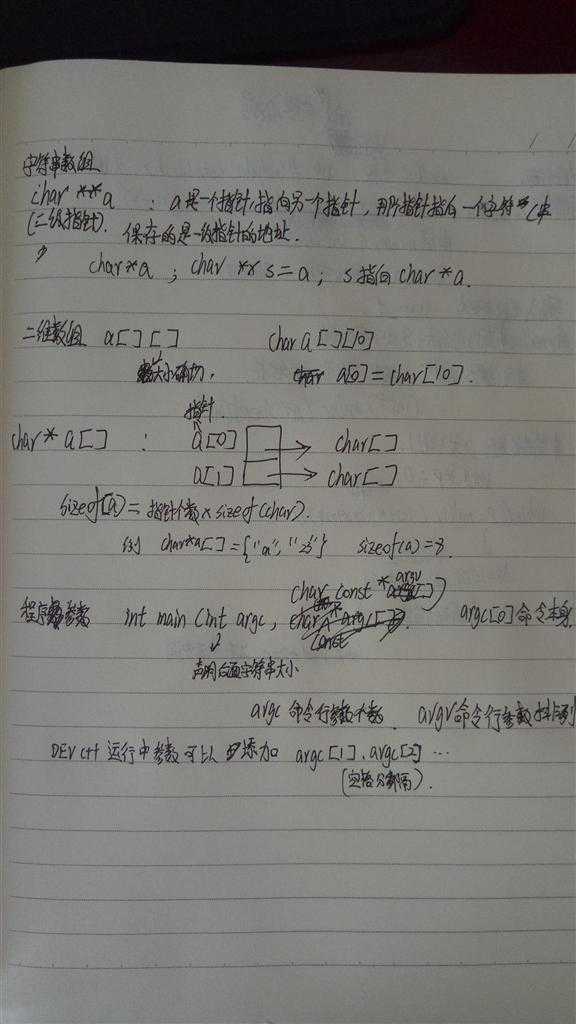 字符串数组
char **a : a是一个指针,指向另一个指针, 那个指针指向一个字符串
(二级指针). 保存的是一级指针的地址.
char*a ; char ** s = a ; s指向char*a.
二维数组 a[ ][ ] char a[ ][10]
大小确切, a[0] = char[10].
指针
char* a[ ] : a[0] → char[ ]
a[1] → char[ ]
sizeof(a) = 指针个数 × sizeof(char).
例 char*a[] = {"a", "zs"} sizeof(a) = 8.
char const * argv[ ])
程序参数 int main (int argc, argc[0]命令本身
const
声明后面字符串大小
argc 命令行参数个数. argv命令行参数排列
DEV C++ 运行中参数可以添加 argc[1]、argc[2] ...
(空格分隔).